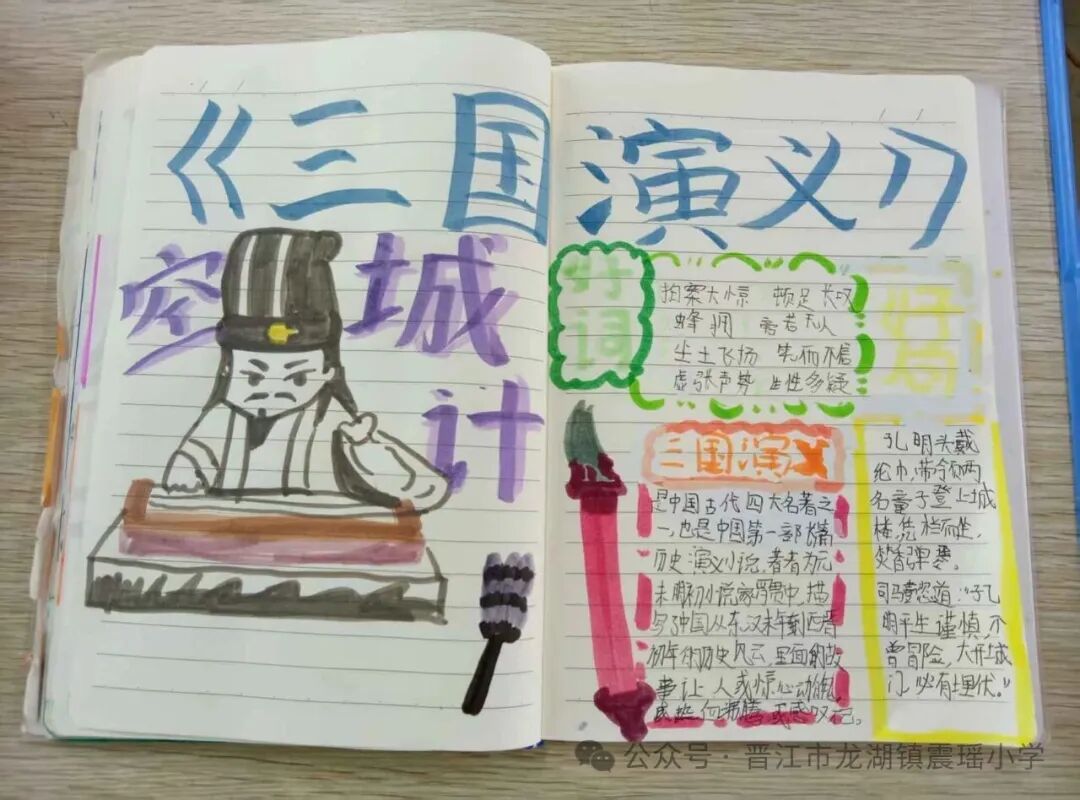 《三国演义》
空城计
好词
拍案大惊 顿足长叹
蜂拥 旁若无人
尘土飞扬 笑而不信
虚张声势 生性多疑
好句
三国演义
是中国古代四大名著之
一,也是中国第一部长篇
历史演义小说,著者为元
末明初小说家罗贯中,描
写了中国从东汉末年到西晋
初年的历史风云,里面的故
事让人或惊心动魄,
或热血沸腾,或感叹不已。
孔明头戴
纶巾,带领两
名童子登上城
楼,凭栏而坐,
焚香弹琴。
司马懿忍道:“孔
明平生谨慎,不
曾冒险,大开城
门,必有埋伏。”
公众号·晋江市龙湖镇震瑶小学